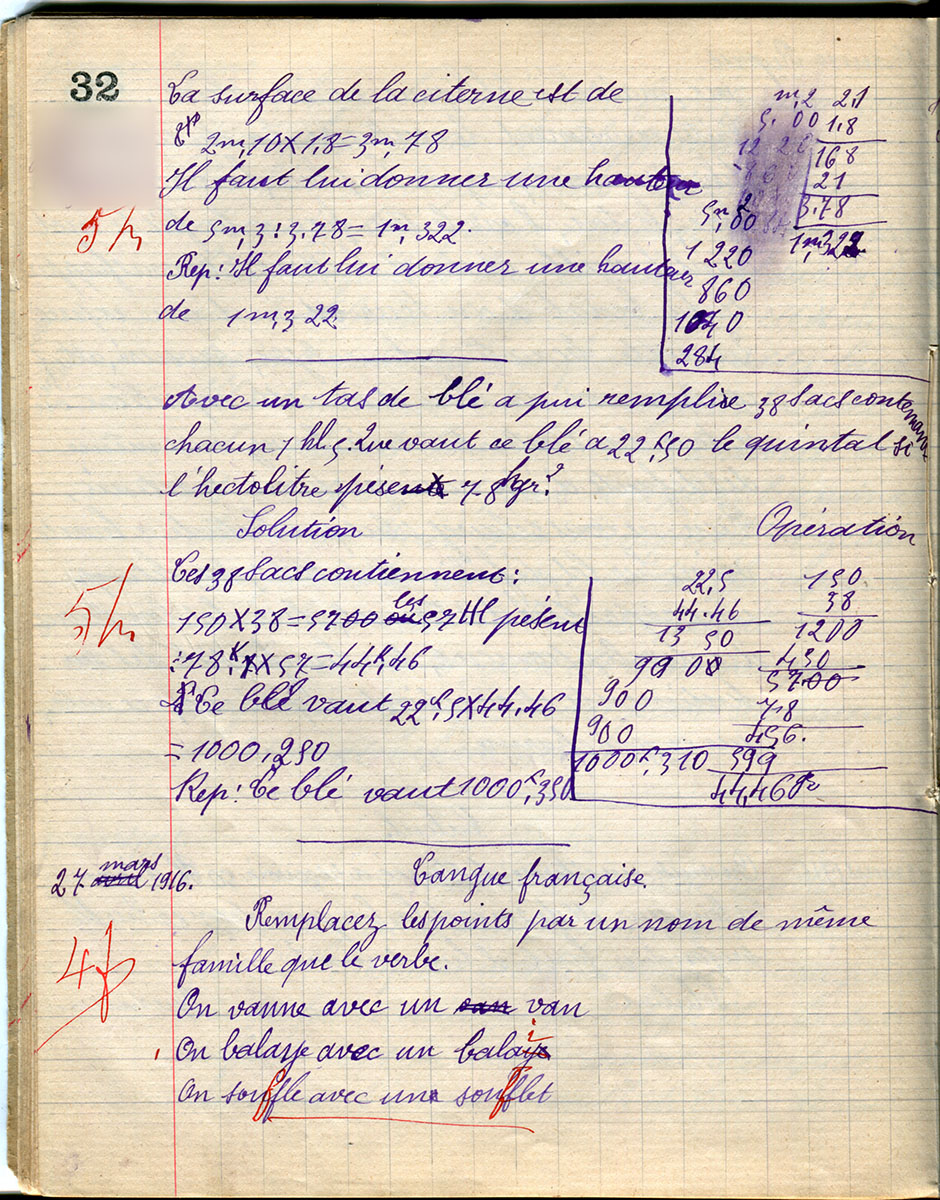 32
La surface de la citerne est de
2m,10X1,8=3m,78
Il faut lui donner une hauteur
de 5m,3:3.78= 1m,322.
5/
Rep: Il faut lui donner une hauteur
de 1m,322
m,2 2,1
5,00 1,8
168
21
3,78
5m,00 1m322
1220
860
1040
284
Avec un tas de blé a pui remplire 38 sacs contenant
chacun 1 hl,5. Que vaut ce blé a 22f,50 le quintal si
l'hectolitre pésent 78kgr?
Solution Opération
Ces 38 sacs contiennent:
5/
150X38=5700 ou les 57 Hl pésent
:78K,XX57=44K,46
Ce blé vaut 22f,5X44,46
=1000,250
Rep: Ce blé vaut 1000f,350
22,5 150
44.46 38
13 50 1200
99 00 450
900 5700
900 78
456.
1000f,310 399
44,46
27 avril mars 1916.
Langue française.
4
Remplacez les points par un nom de même
famille que le verbe.
On vanne avec un van van
On balaye avec un balai
On souffle avec un soufflet